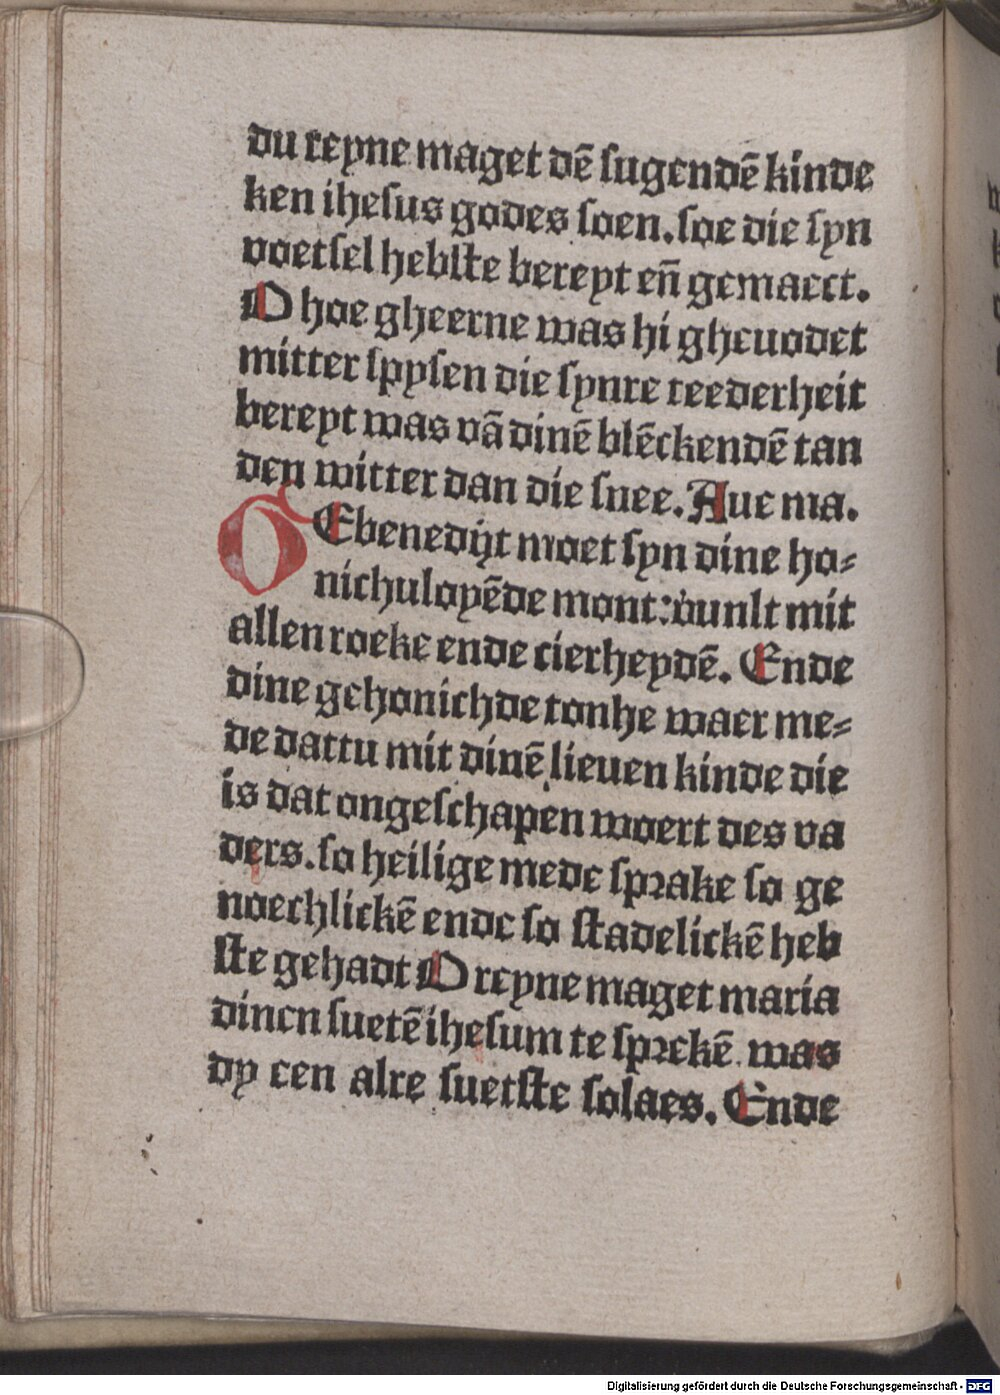 du reyne maget dē sugendē kinde
ken ihesus godes soen. soe die syn
voetsel hebste bereyt eñ gemaect.
O hoe gheerne was hi gheuodet
mitter spysen die synre teederheit
bereyt was vā dinē blēckendē tan
den witter dan die snee. Aue ma.
GEbenedijt moet syn dine ho-
nichuloyēde mont: vunlt mit
allen roeke ende cierheydē. Ende
dine gehonichde tonhe waer me-
de dattu mit dinē lieuen kinde die
is dat ongeschapen woert des va
ders. so heilige mede sprake so ge
noechlickē ende so stadelickē heb
ste gehadt O reyne maget maria
dinen suetē ihesum te sprekē. was
dy een alre suetste solaes. Ende
Digitalisierung gefördert durch die Deutsche Forschungsgemeinschaft - DFG